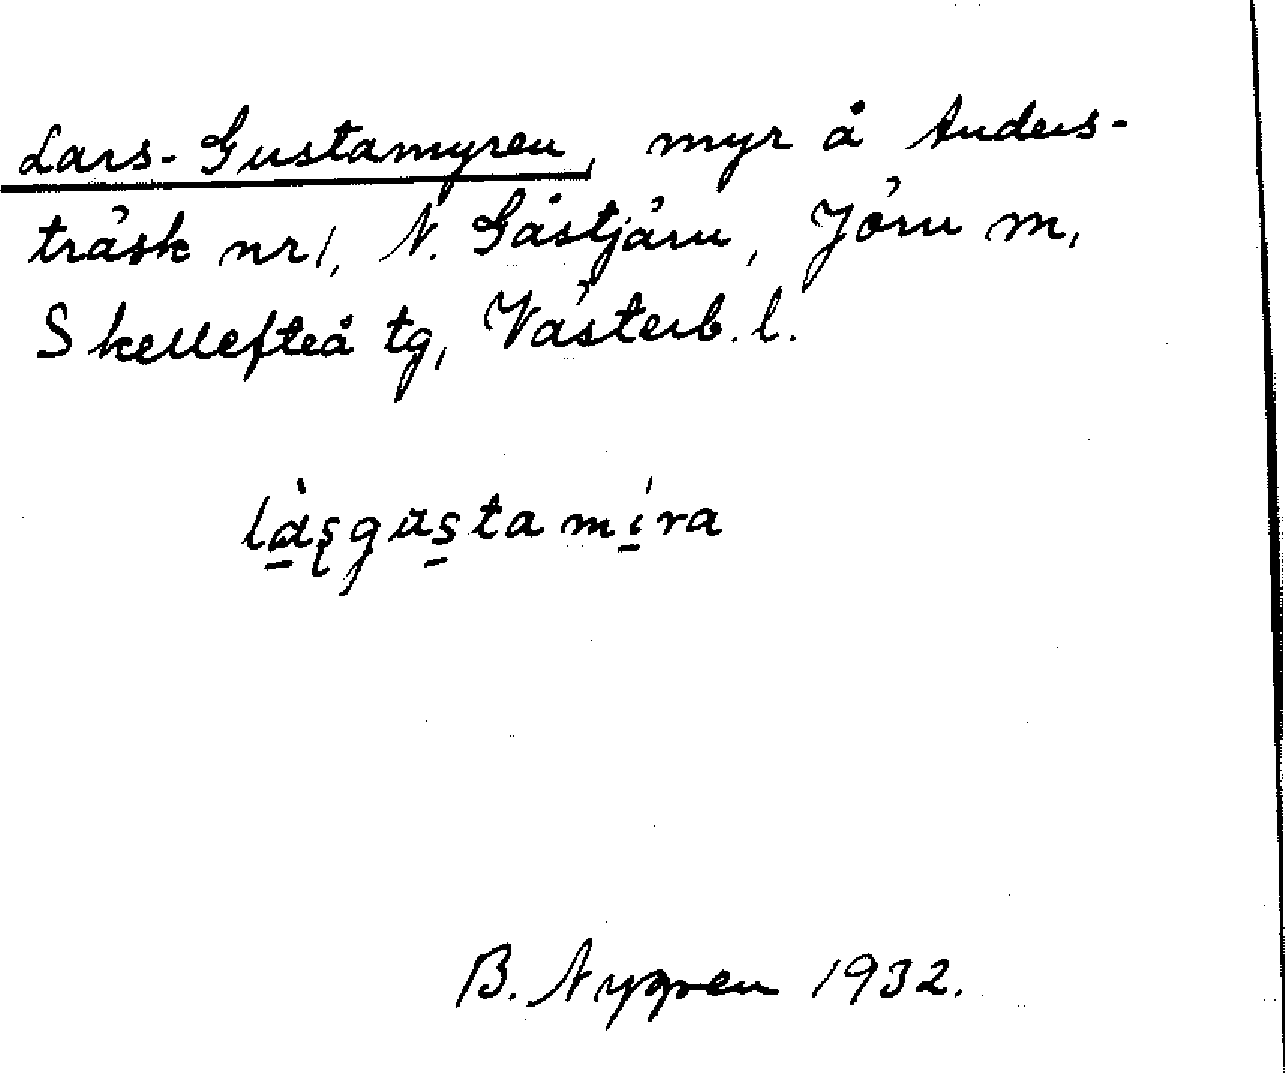 Lars-Gustamyren, myr å Anders-
träsk nr 1, N. Gåstjärn, Jörn m,
Skellefteå tg, Västerb. l.
lɑ̀ʂgustamíra
B. Nygren 1932.